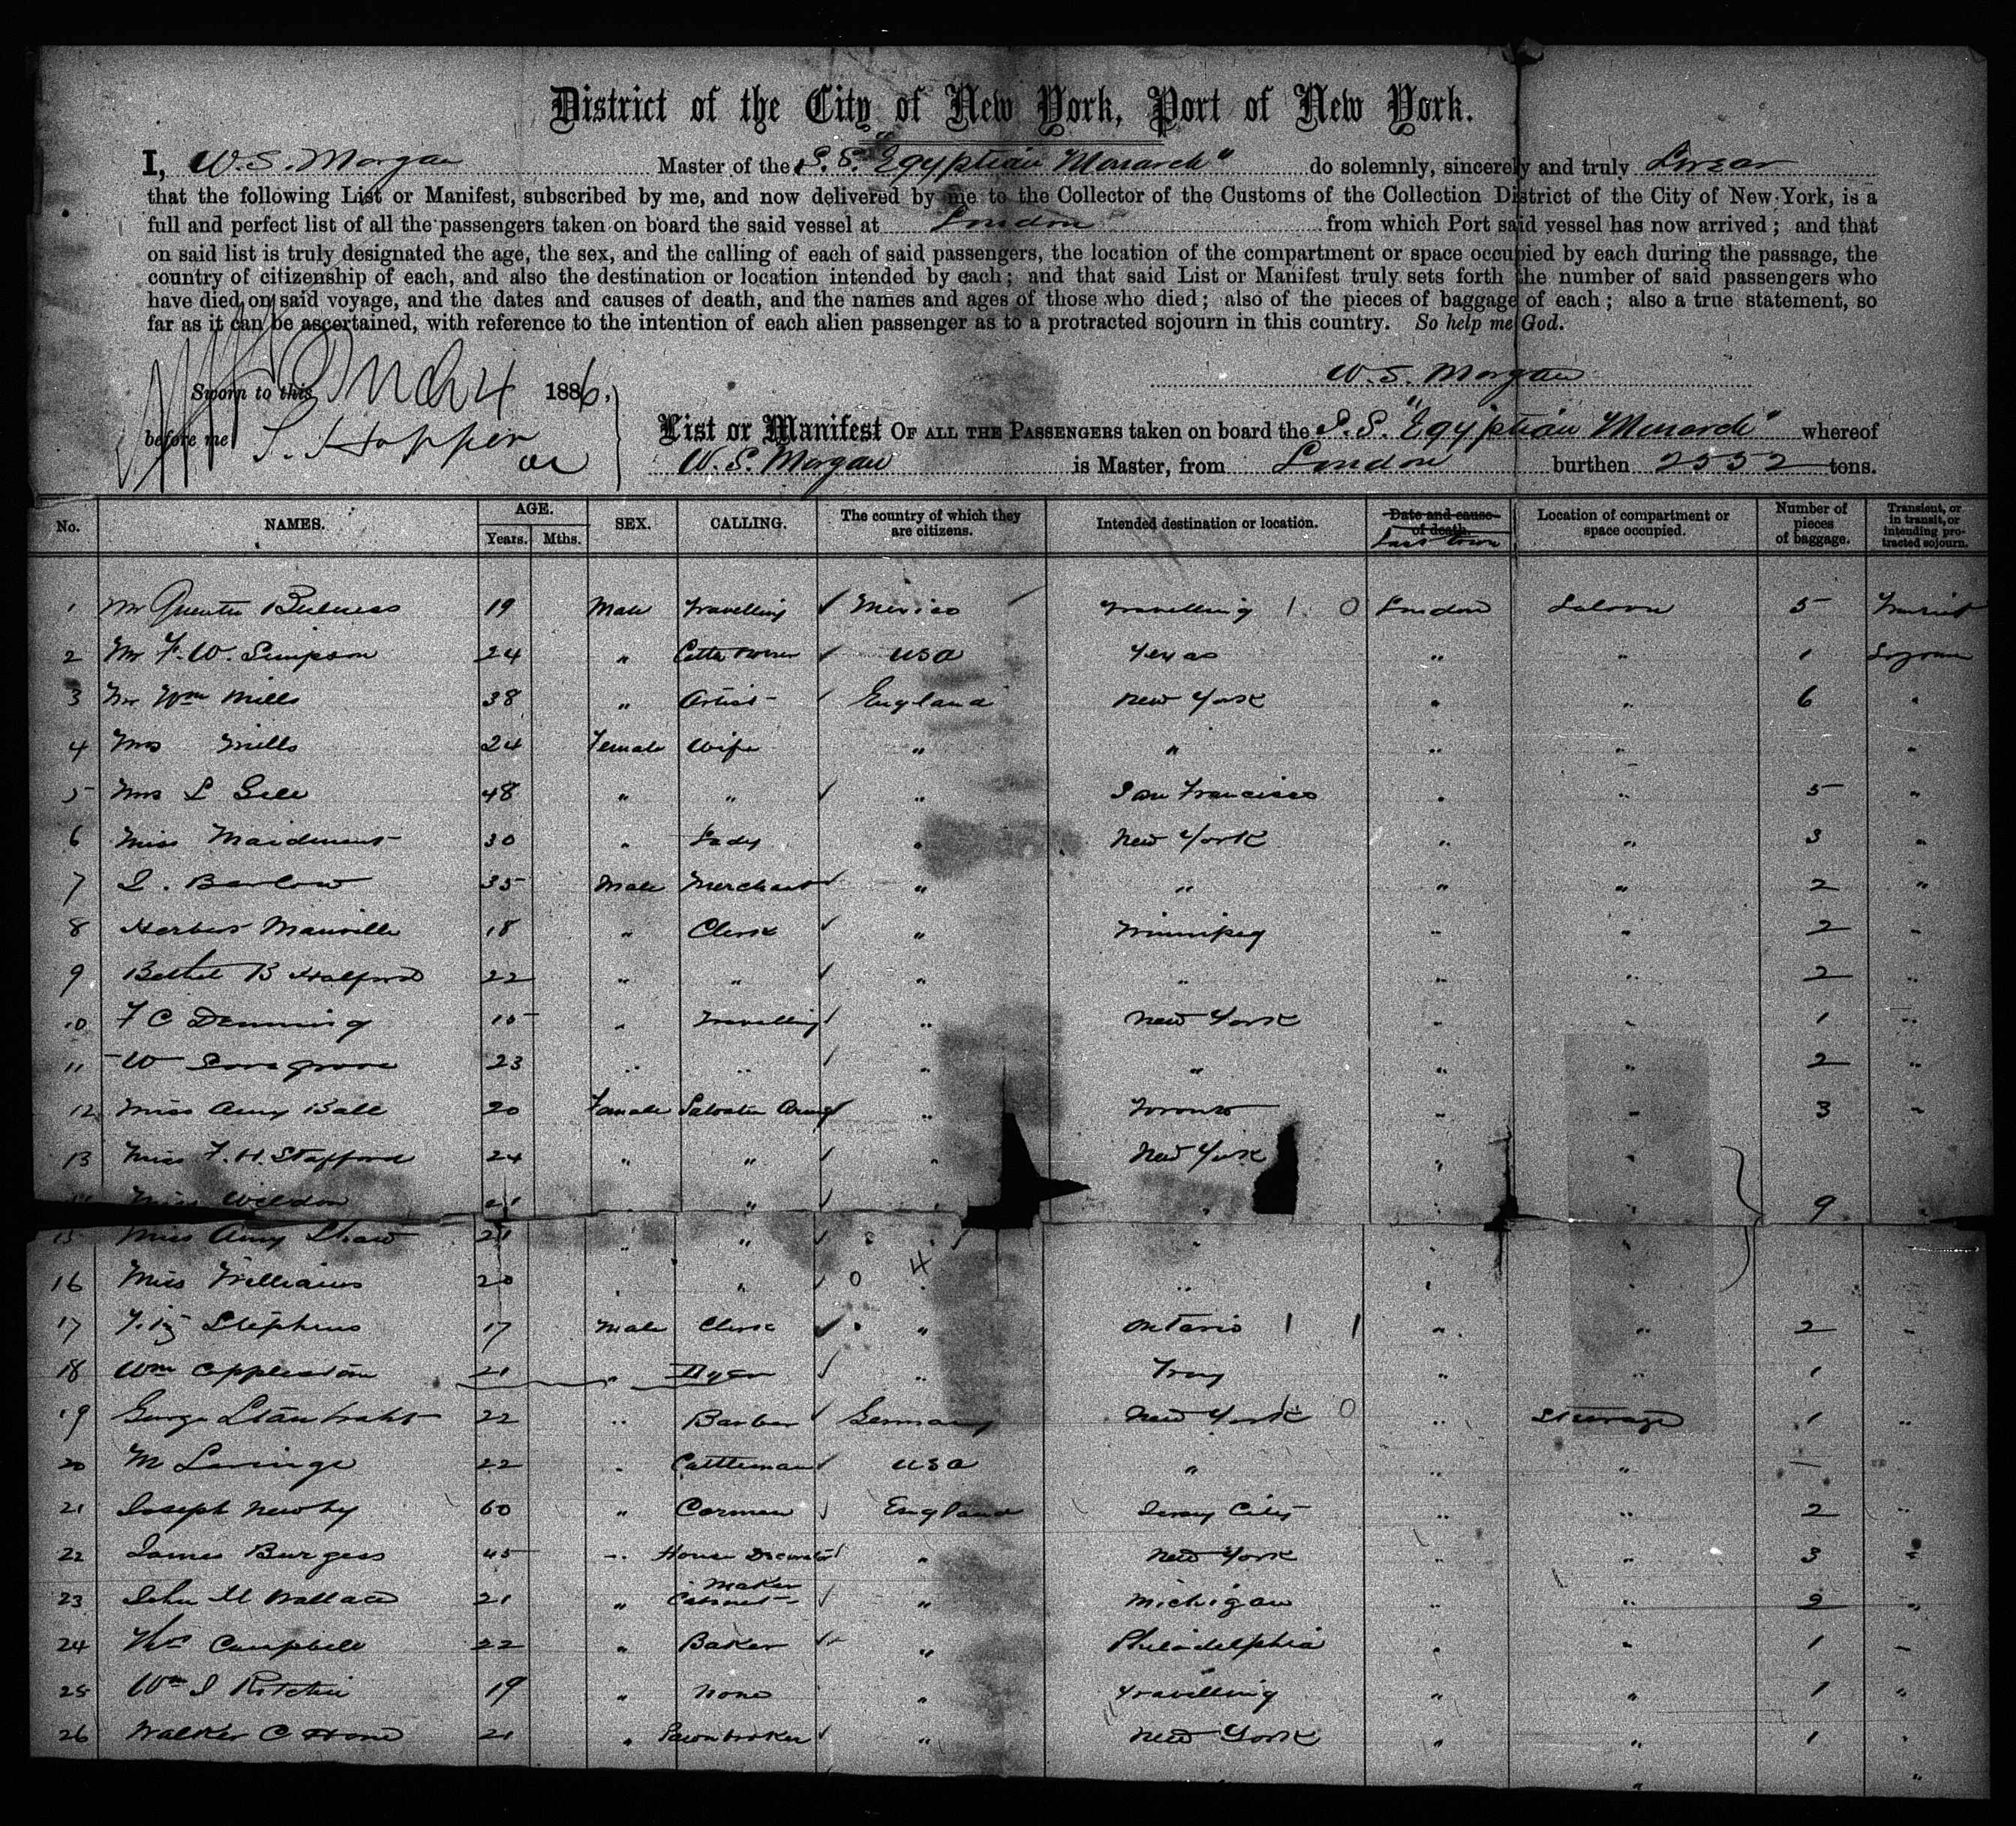 District of the City of New York, Port of New York.
I, W. S. Morgan Master of the S. S. "Egyptian Monarch" do solemnly, sincerely and truly Swear
that the following List or Manifest, subscribed by me, and now delivered by me to the Collector of the Customs of the Collection District of the City of New-York, is a
full and perfect list of all the passengers taken on board the said vessel at London from which Port said vessel has now arrived; and that
on said list is truly designated the age, the sex, and the calling of each of said passengers, the location of the compartment or space occupied by each during the passage, the
country of citizenship of each, and also the destination or location intended by each; and that said List or Manifest truly sets forth the number of said passengers who
have died on said voyage, and the dates and causes of death, and the names and ages of those who died; also of the pieces of baggage of each; also a true statement, so
far as it can be ascertained, with reference to the intention of each alien passenger as to a protracted sojourn in this country. So help me God.
W. S. Morgan
Sworn to this Mch 4 1886,
before me S. Hopper
List or Manifest OF ALL THE PASSENGERS taken on board the S. S. "Egyptian Monarch" whereof
W. S. Morgan is Master, from London burthen 2552 tons.
No. NAMES. AGE. Years. Mths. SEX. CALLING. The country of which they are citizens. Intended destination or location. Date and cause of death. Last town Location of compartment or space occupied. Number of pieces of baggage. Transient, or in transit, or intending protracted sojourn.
1 Mr Quentin Bulness 19 Male Travelling Mexico Travelling 1 0 London Saloon 5 Transit
2 Mr F. W. Simpson 24 " USA Texas " " 1 Sojourn
3 Mr Wm Mills 38 " Artist England New York " " 6 "
4 Mrs Mills 24 Female Wife " " " " "
5 Mrs L Gell 48 " " " San Francisco " " 5 "
6 Miss Maidment 30 " Lady " New York " " 3 "
7 I. Barlow 35 Male Merchant " " " " 2 "
8 Herbert Manville 18 " Clerk " Winnipeg " " 2 "
9 Bethel B Halford 22 " " " " " " 2 "
10 F C Denning 15 " Travelling " New York " " 1 "
11 W 23 " " " " " " 2 "
12 Miss Amy Ball 20 Female Salvation Army " Toronto " " 3 "
13 Miss F. H. Stafford 24 " " " New York " "
14 Miss Weldon 21 " " " " " " 9 "
15 Miss Amy Shaw 21 " " " " " "
16 Miss Williams 20 " " 0 4 " " " "
17 Stephens 17 Male Clerk " Ontario 1 1 " " 2 "
18 Wm Appleton 21 " Dyer " Troy " " 1
19 George 22 " Barber Germany New York 0 " Steerage 1 "
20 M Lavinge 22 " Cattleman USA " " " — "
21 Joseph Newby 60 " Carman England Jersey City " " 2 "
22 James Burgess 45 " House Decorator " New York " " 3 "
23 John M Wallace 21 " Cabinet Maker " Michigan " " 2 "
24 Wm Campbell 22 " Baker " Philadelphia " " 1 "
25 Wm I Ritchie 19 " None " Travelling " " 1 "
26 Walker C Hone 21 " Pawnbroker " New York " " 1 "